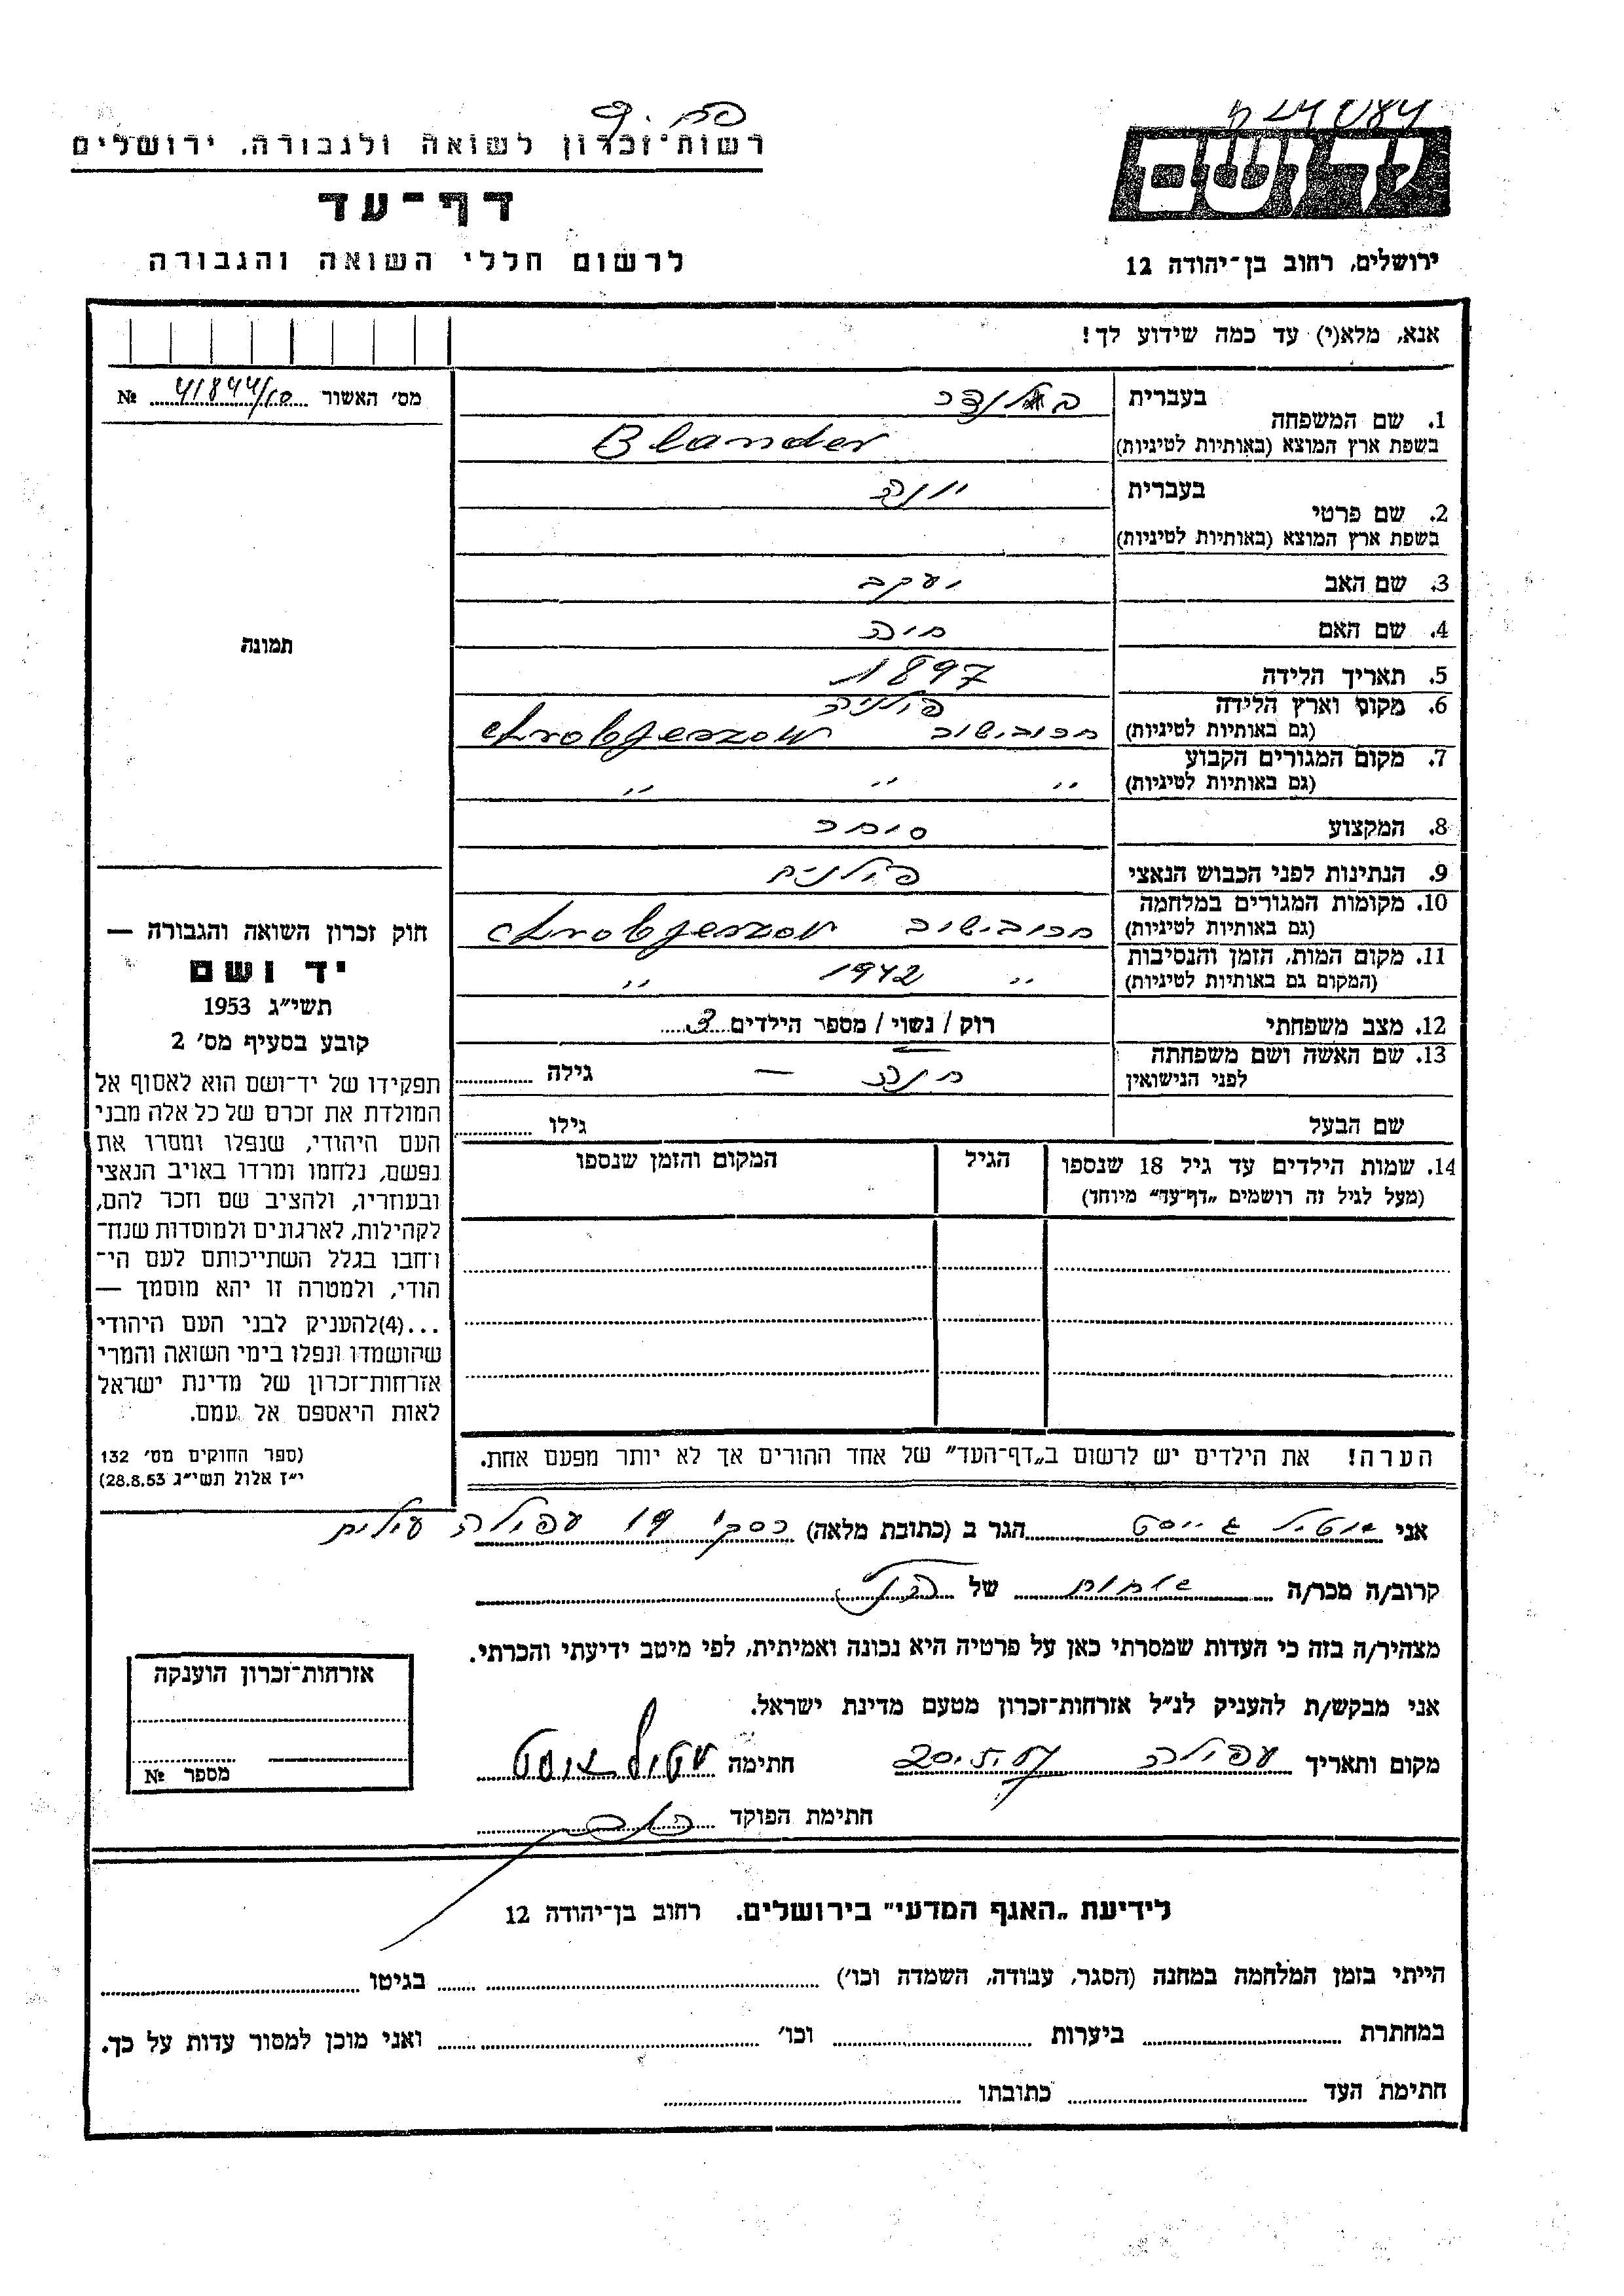 רשות־זכרון לשואה ולגבורה, ירושלים
דף־עד
לרשום חללי השואה והגבורה
יד ושם
ירושלים, רחוב בן־יהודה 12
אנא, מלא(י) עד כמה שידוע לך!
מס׳ האשור 41844/10 №
תמונה
חוק זכרון השואה והגבורה —
יד ושם
תשי״ג 1953
קובע בסעיף מס׳ 2
תפקידו של יד־ושם הוא לאסוף אל
המולדת את זכרם של כל אלה מבני
העם היהודי, שנפלו ומסרו את
נפשם, נלחמו ומרדו באויב הנאצי
ובעוזריו, ולהציב שם וזכר להם,
לקהילות, לארגונים ולמוסדות שנח־
רחבו בגלל השתייכותם לעם הי־
הודי, ולמטרה זו יהא מוסמך —
...(4)להעניק לבני העם היהודי
שהושמדו ונפלו בימי השואה והמרי
אזרחות־זכרון של מדינת ישראל
לאות היאספם אל עמם.
(ספר החוקים מס׳ 132
י״ז אלול תשי״ג 28.8.53)
בעברית
1. שם המשפחה
בשפת ארץ המוצא (באותיות לטיניות) Blander
בעברית יונה
2. שם פרטי
בשפת ארץ המוצא (באותיות לטיניות)
3. שם האב יעקב
4. שם האם חיה
5. תאריך הלידה 1897
6. מקום וארץ הלידה פולניה
(גם באותיות לטיניות) חרובישוב chrobjeszow
7. מקום המגורים הקבוע
(גם באותיות לטיניות) ״ ״ ״
8. המקצוע סוחר
9. הנתינות לפני הכבוש הנאצי פולנית
10. מקומות המגורים במלחמה
(גם באותיות לטיניות) חרובישוב chrobjeszow
11. מקום המות, הזמן והנסיבות
(המקום גם באותיות לטיניות) ״ 1942 ״
12. מצב משפחתי רוק / נשוי / מספר הילדים 3
13. שם האשה ושם משפחתה
לפני הנישואין חנה — גילה
שם הבעל גילו
14. שמות הילדים עד גיל 18 שנספו הגיל המקום והזמן שנספו
(מעל לגיל זה רושמים „דף־עד״ מיוחד)
הערה! את הילדים יש לרשום ב„דף־העד״ של אחד ההורים אך לא יותר מפעם אחת.
אני הגר ב (כתובת מלאה) 19 עפולה עילית
קרוב/ה מכר/ה של
מצהיר/ה בזה כי העדות שמסרתי כאן על פרטיה היא נכונה ואמיתית, לפי מיטב ידיעתי והכרתי.
אני מבקש/ת להעניק לנ״ל אזרחות־זכרון מטעם מדינת ישראל.
מקום ותאריך עפולה 20.5.57 חתימה
חתימת הפוקד
אזרחות־זכרון הוענקה
מספר №
לידיעת „האגף המדעי״ בירושלים, רחוב בן־יהודה 12
הייתי בזמן המלחמה במחנה (הסגר, עבודה, השמדה וכו׳) בגיטו
במחתרת ביערות וכו׳ ואני מוכן למסור עדות על כך.
חתימת העד כתובתו